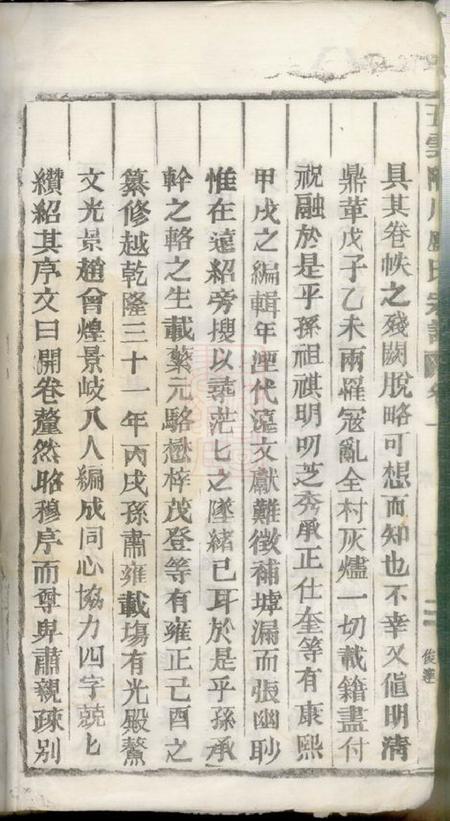 具其卷帙之殘闕脫略可想而知也不幸又值明清
鼎革戊子乙未兩羅寇亂全村灰燼一切載籍盡付
祝融於是乎孫祖祺明明芝秀承正仕奎等有康熙
甲戌之編輯年湮代遠文獻難徵補罅漏而張幽眇
惟在遠紹旁搜以尋茫匕之墜緒已耳於是乎孫承
幹之輅之生載蘩元駱懋梓茂登等有雍正己酉之
纂修越乾隆三十一年丙戌孫肅雍載場有光殿鰲
文光景趙曾煌景岐八人編成同心協力四字兢匕
纘紹其序文曰開卷釐然昭穆序而尊卑肅親疎別
俊達